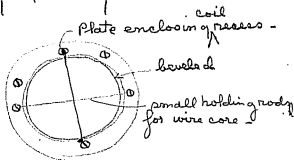 coil
Plate enclosing recess -
beveled
small holding rod
for wire core.